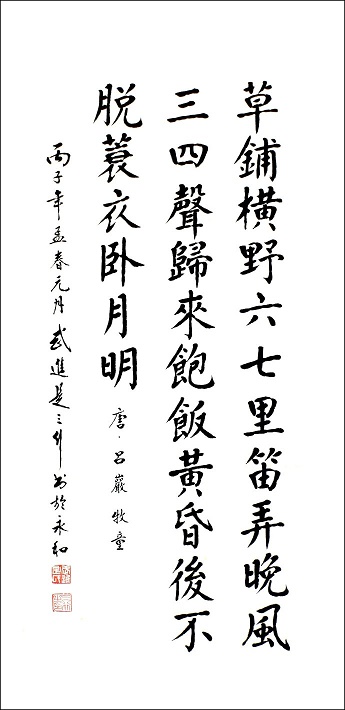 草鋪橫野六七里笛弄晚風
三四聲歸來飽飯黃昏後不
脫蓑衣卧月明
唐·呂巖 牧童
丙子年孟春元月武進是三竹書於永和